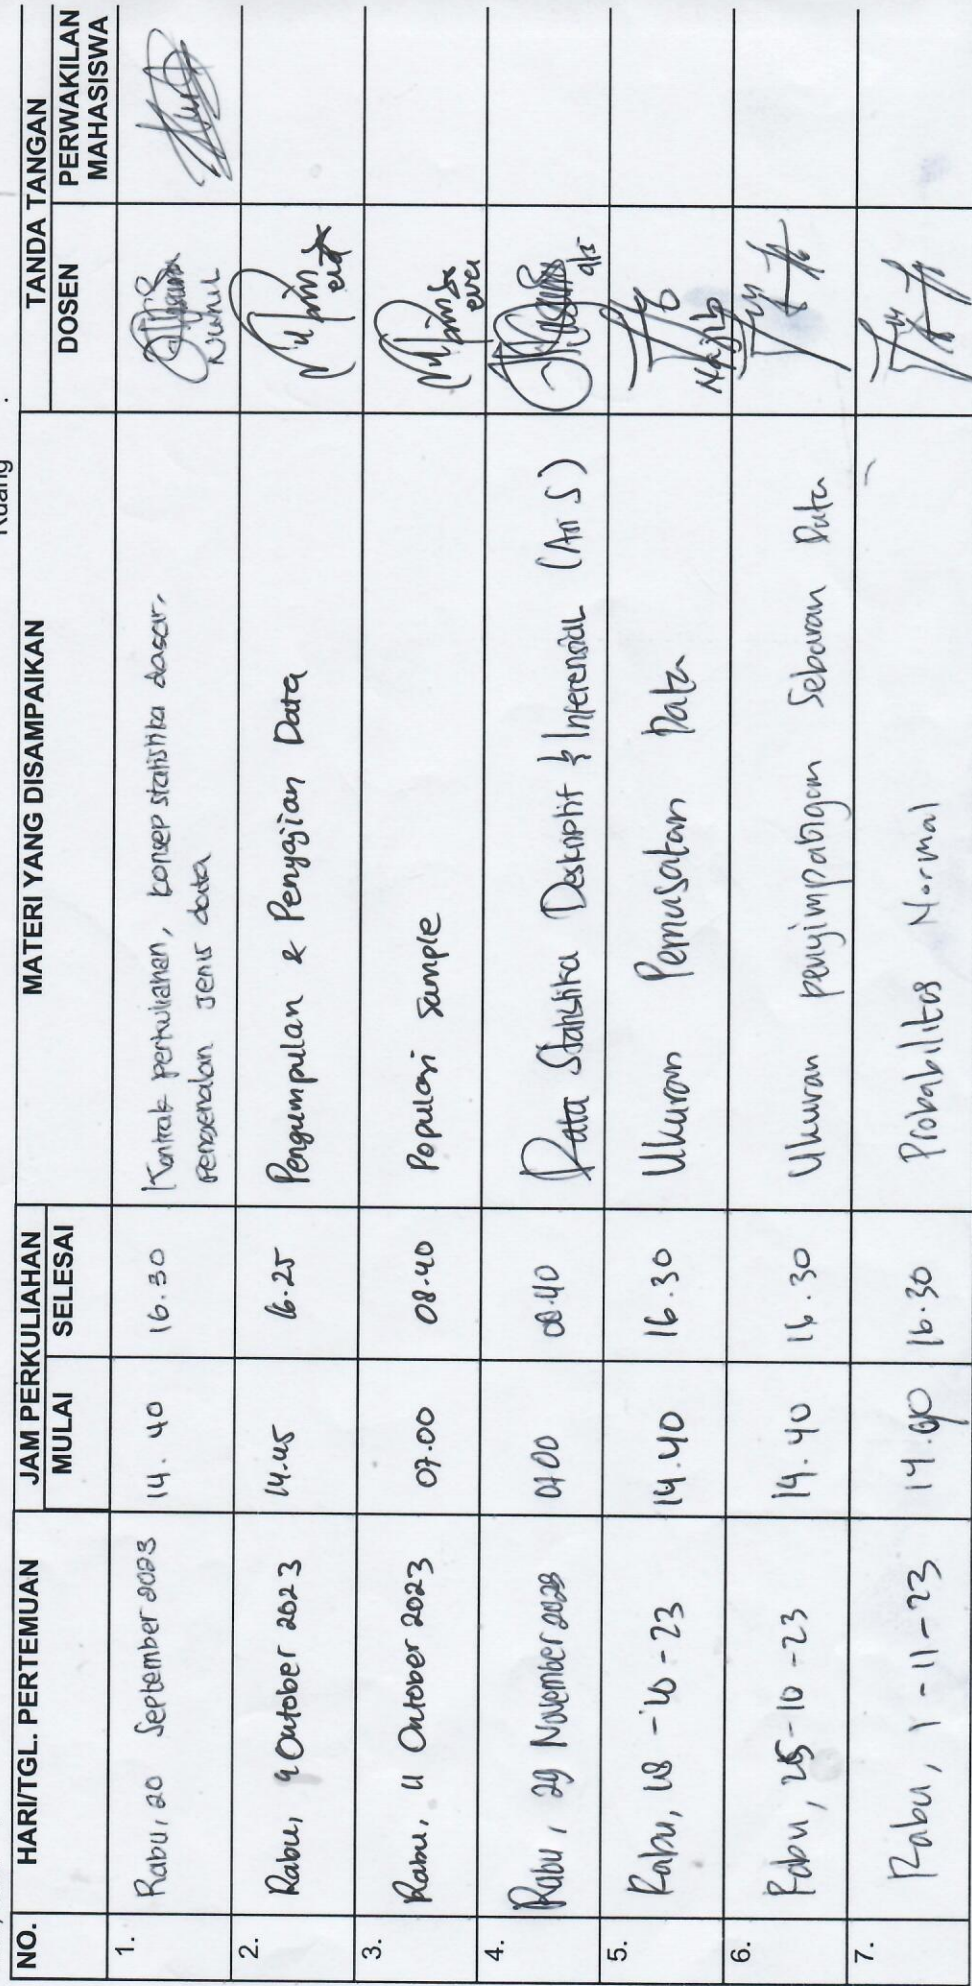 Ruang
NO. HARI/TGL. PERTEMUAN JAM PERKULIAHAN MATERI YANG DISAMPAIKAN TANDA TANGAN
MULAI SELESAI DOSEN PERWAKILAN MAHASISWA
1. Rabu, 20 September 2023 14.40 16.30 Kontrak perkuliahan, konsep statistika dasar,
pengenalan jenis data
2. Rabu, 4 Oktober 2023 14.45 16.25 Pengumpulan & Penyajian Data
3. Rabu, 11 Oktober 2023 07.00 08.40 Populasi Sample
4. Rabu, 29 November 2023 07.00 08.40 Data Statistika Deskriptif & Inferensial
5. Rabu, 18-10-23 14.40 16.30 Ukuran Pemusatan Data Najib
6. Rabu, 25-10-23 14.40 16.30 Ukuran penyimpangan Sebaran Data
7. Rabu, 1-11-23 14.40 16.30 Probabilitas Normal